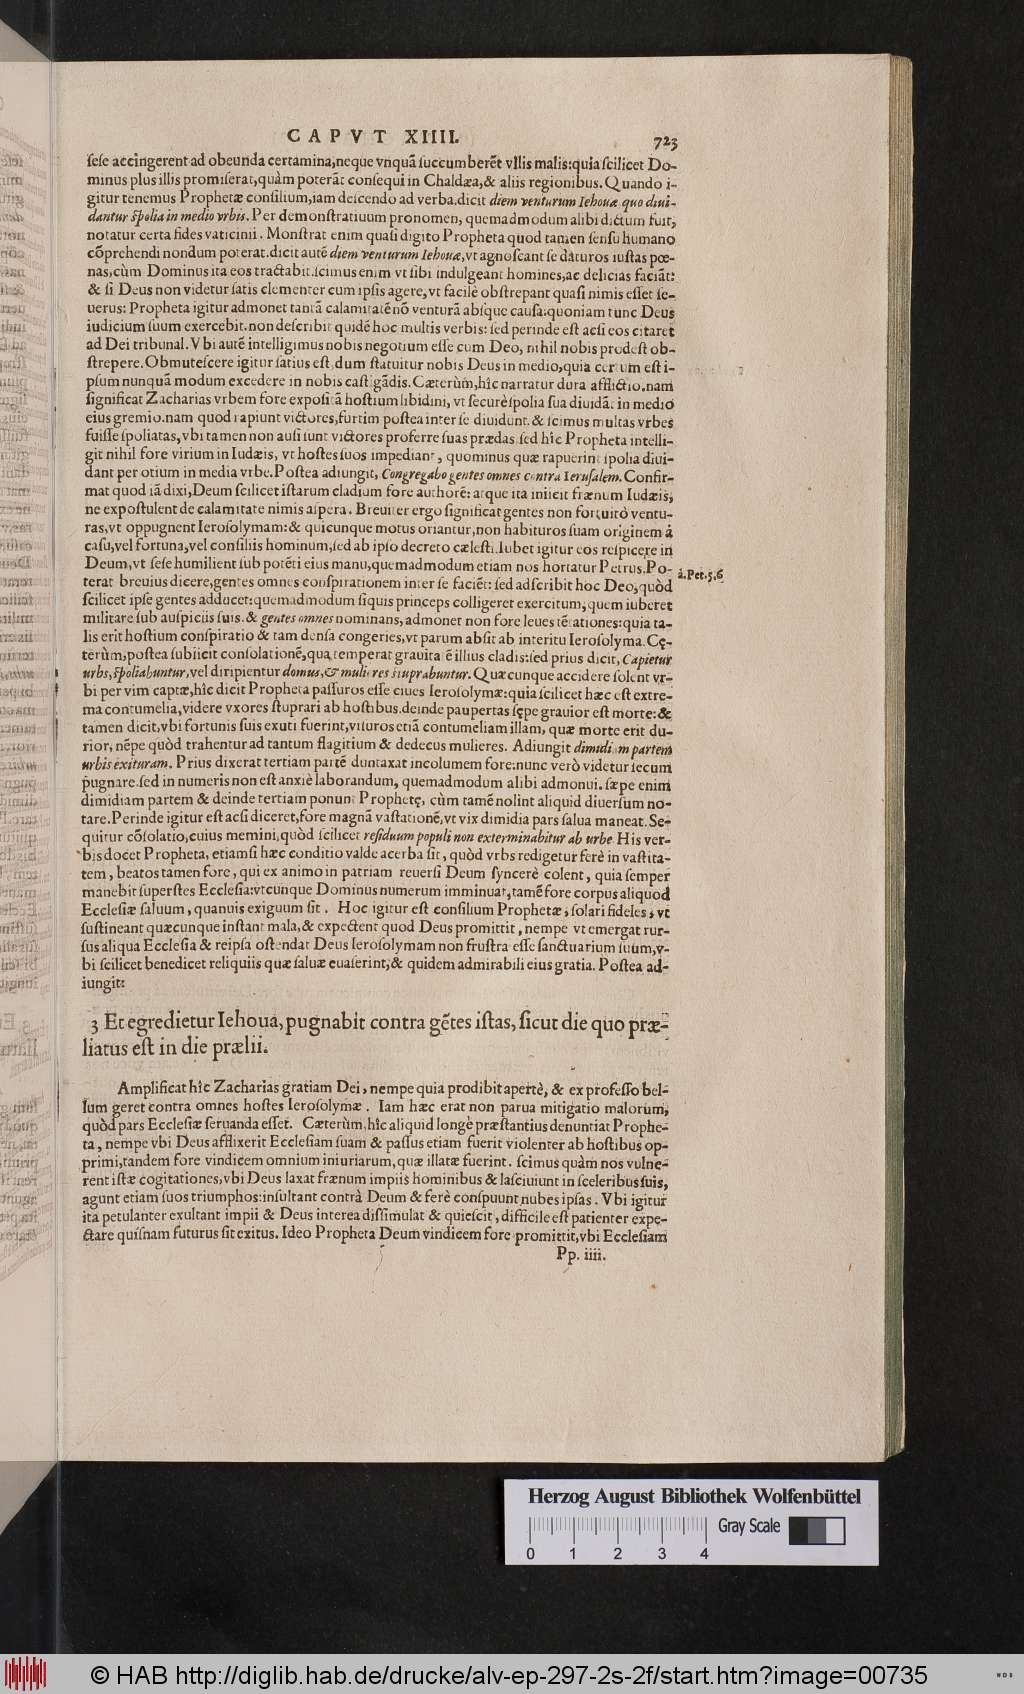 CAPVT XIIII. 723
ſeſe accingerent ad obeunda certamina,neque vnquā ſuccumberēt vllis malis:quia ſcilicet Do-
minus plus illis promiſerat,quàm poterāt conſequi in Chaldæa,& aliis regionibus. Quando i-
gitur tenemus Prophetæ conſilium,iam deſcendo ad verba.dicit diem venturum Iehouæ quo diui-
dantur ſpolia in medio vrbis. Per demonſtratiuum pronomen, quemadmodum alibi dictum fuit,
notatur certa fides vaticinii. Monſtrat enim quaſi digito Propheta quod tamen ſenſu humano
cōprehendi nondum poterat.dicit autē diem venturum Iehouæ,vt agnoſcant ſe daturos iuſtas pœ-
nas,cùm Dominus ita eos tractabit.ſcimus enim vt ſibi indulgeant homines,ac delicias faciāt:
& ſi Deus non videtur ſatis clementer cum ipſis agere,vt facilè obſtrepant quaſi nimis eſſet ſe-
uerus: Propheta igitur admonet tantā calamitatē nō venturā abſque cauſa:quoniam tunc Deus
iudicium ſuum exercebit.non deſcribit quidē hoc multis verbis: ſed perinde eſt acſi eos citaret
ad Dei tribunal. Vbi autē intelligimus nobis negotium eſſe cum Deo, nihil nobis prodeſt ob-
ſtrepere. Obmuteſcere igitur ſatius eſt,dum ſtatuitur nobis Deus in medio,quia certum eſt i-
pſum nunquā modum excedere in nobis caſtigādis. Cæterùm,hîc narratur dura afflictio.nam
ſignificat Zacharias vrbem fore expoſitā hoſtium libidini, vt ſecurè ſpolia ſua diuidāt in medio
eius gremio.nam quod rapiunt victores,furtim poſtea inter ſe diuidunt.& ſcimus multas vrbes
fuiſſe ſpoliatas,vbi tamen non auſi ſunt victores proferre ſuas prædas.ſed hîc Propheta intelli-
git nihil fore virium in Iudæis, vt hoſtes ſuos impediant, quominus quæ rapuerint ſpolia diui-
dant per otium in media vrbe. Poſtea adiungit, Congregabo gentes omnes contra Ieruſalem. Confir-
mat quod iā dixi,Deum ſcilicet iſtarum cladium fore authorē: atque ita iniicit frænum Iudæis,
ne expoſtulent de calamitate nimis aſpera. Breuiter ergo ſignificat gentes non fortuitò ventu-
ras,vt oppugnent Ieroſolymam:& quicunque motus oriantur,non habituros ſuam originem à
caſu,vel fortuna,vel conſiliis hominum,ſed ab ipſo decreto cæleſti.Iubet igitur eos reſpicere in
Deum,vt ſeſe humilient ſub potēti eius manu,quemadmodum etiam nos hortatur Petrus. Po-
1.Pet.5,6
terat breuius dicere,gentes omnes conſpirationem inter ſe faciēt: ſed adſcribit hoc Deo,quòd
ſcilicet ipſe gentes adducet:quemadmodum ſiquis princeps colligeret exercitum,quem iuberet
militare ſub auſpiciis ſuis.& gentes omnes nominans, admonet non fore leues tētationes:quia ta-
lis erit hoſtium conſpiratio & tam denſa congeries,vt parum abſit ab interitu Ieroſolyma. Cę-
terùm,poſtea ſubiicit conſolationē,qua temperat grauitatē illius cladis:ſed prius dicit, Capietur
vrbs,ſpoliabuntur,vel diripientur domus,& mulieres ſtuprabuntur. Quæcunque accidere ſolent vr-
bi per vim captæ,hîc dicit Propheta paſſuros eſſe ciues Ieroſolymæ:quia ſcilicet hæc eſt extre-
ma contumelia,videre vxores ſtuprari ab hoſtibus.deinde paupertas ſępe grauior eſt morte:&
tamen dicit,vbi fortunis ſuis exuti fuerint,viſuros etiā contumeliam illam, quæ morte erit du-
rior, nēpe quòd trahentur ad tantum flagitium & dedecus mulieres. Adiungit dimidiam partem
vrbis exituram. Prius dixerat tertiam partē duntaxat incolumem fore:nunc verò videtur ſecum
pugnare.ſed in numeris non eſt anxiè laborandum, quemadmodum alibi admonui. ſæpe enim
dimidiam partem & deinde tertiam ponunt Prophetę, cùm tamē nolint aliquid diuerſum no-
tare.Perinde igitur eſt acſi diceret,fore magnā vaſtationē,vt vix dimidia pars ſalua maneat. Se-
quitur cōſolatio,cuius memini,quòd ſcilicet reſiduum populi non exterminabitur ab vrbe. His ver-
bis docet Propheta, etiamſi hæc conditio valde acerba ſit, quòd vrbs redigetur ferè in vaſtita-
tem, beatos tamen fore, qui ex animo in patriam reuerſi Deum ſyncerè colent, quia ſemper
manebit ſuperſtes Eccleſia:vtcunque Dominus numerum imminuat,tamē fore corpus aliquod
Eccleſiæ ſaluum, quanuis exiguum ſit. Hoc igitur eſt conſilium Prophetæ, ſolari fideles, vt
ſuſtineant quæcunque inſtant mala,& expectent quod Deus promittit, nempe vt emergat rur-
ſus aliqua Eccleſia & reipſa oſtendat Deus Ieroſolymam non fruſtra eſſe ſanctuarium ſuum,v-
bi ſcilicet benedicet reliquiis quæ ſaluæ euaſerint,& quidem admirabili eius gratia. Poſtea ad-
iungit:
3 Et egredietur Iehoua, pugnabit contra gētes iſtas, ſicut die quo præ-
liatus eſt in die prælii.
Amplificat hîc Zacharias gratiam Dei, nempe quia prodibit apertè, & ex profeſſo bel-
lum geret contra omnes hoſtes Ieroſolymæ. Iam hæc erat non parua mitigatio malorum,
quòd pars Eccleſiæ ſeruanda eſſet. Cæterùm,hîc aliquid longè præſtantius denuntiat Prophe-
ta, nempe vbi Deus afflixerit Eccleſiam ſuam & paſſus etiam fuerit violenter ab hoſtibus op-
primi,tandem fore vindicem omnium iniuriarum,quæ illatæ fuerint. ſcimus quàm nos vulne-
rent iſtæ cogitationes,vbi Deus laxat frænum impiis hominibus & laſciuiunt in ſceleribus ſuis,
agunt etiam ſuos triumphos:inſultant contrà Deum & ferè conſpuunt nubes ipſas. Vbi igitur
ita petulanter exultant impii & Deus interea diſſimulat & quieſcit, difficile eſt patienter expe-
ctare quiſnam futurus ſit exitus. Ideo Propheta Deum vindicem fore promittit, vbi Eccleſiam
Pp. iiii.
Herzog August Bibliothek Wolfenbüttel
Gray Scale
0 1 2 3 4
© HAB http://diglib.hab.de/drucke/alv-ep-297-2s-2f/start.htm?image=00735